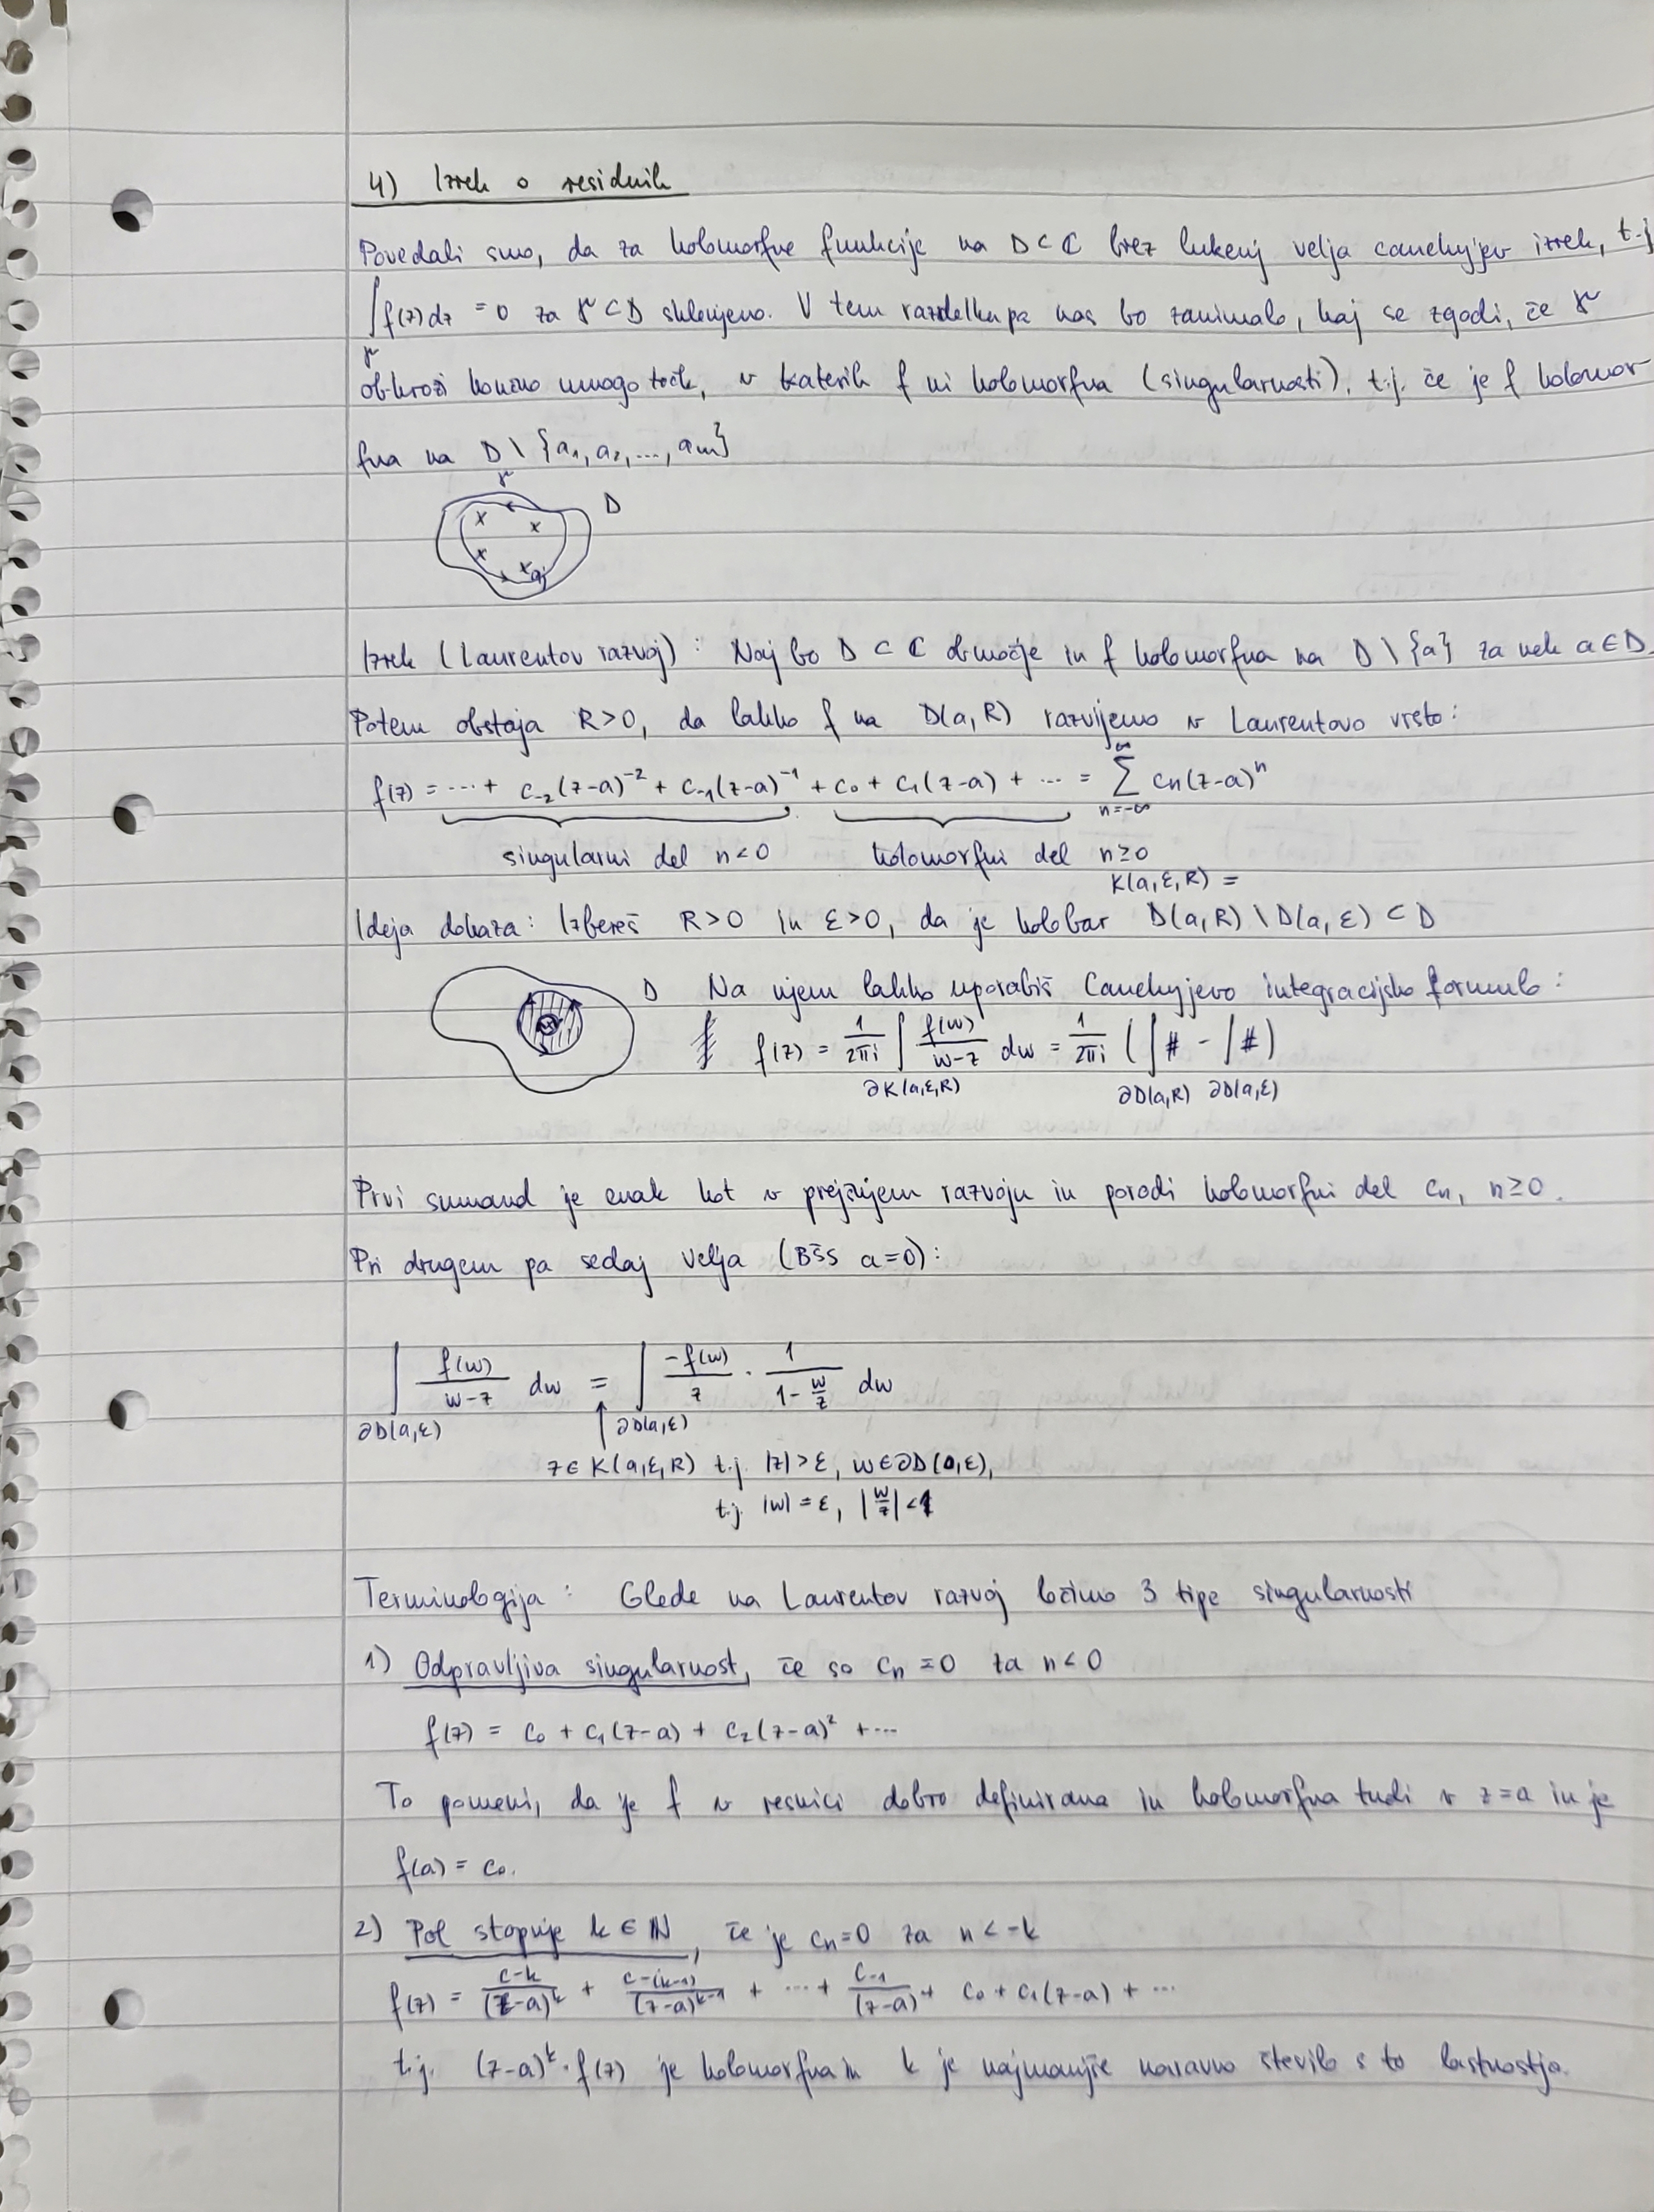 4) Izrek o residuih
Povedali smo, da za holomorfne funkcije na D ⊂ ℂ brez lukenj velja cauchyjev izrek, t.j
∫f(z)dz = 0 za γ ⊂ D sklenjeno. V tem razdelku pa nas bo zanimalo, kaj se zgodi, če γ
γ
obkroži končno mnogo točk, v katerih f ni holomorfna (singularnosti), t.j. če je f holomor
fna na D \ {a₁, a₂, ..., aₘ}
γ
D
x x
x x aⱼ
Izrek (Laurentov razvoj): Naj bo D ⊂ ℂ območje in f holomorfna na D \ {a} za nek a ∈ D.
Potem obstaja R>0, da lahko f na D(a,R) razvijemo v Laurentovo vrsto:
f(z) = ... + c₋₂(z-a)⁻² + c₋₁(z-a)⁻¹ + c₀ + c₁(z-a) + ... = ∑_{n=-∞}^{∞} cn(z-a)ⁿ
singularni del n<0 holomorfni del n≥0
K(a,ε,R) =
Ideja dokaza: Izbereš R>0 in ε>0, da je kolobar D(a,R) \ D(a,ε) ⊂ D
D Na njem lahko uporabiš Cauchyjevo integracijsko formulo:
f(z) = 1/2πi ∫ f(w)/w-z dw = 1/2πi (∫# - ∫#)
∂K(a,ε,R) ∂D(a,R) ∂D(a,ε)
Prvi sumand je enak kot v prejšnjem razvoju in porodi holomorfni del cn, n≥0.
Pri drugem pa sedaj velja (BŠS a=0):
∫ f(w)/w-z dw = ∫ -f(w)/z · 1/(1-w/z) dw
∂D(a,ε) ↑ ∂D(a,ε)
z ∈ K(a,ε,R) t.j. |z|>ε, w∈∂D(0,ε),
t.j. |w|=ε, |w/z|<1
Terminologija: Glede na Laurentov razvoj ločimo 3 tipe singularnosti
1) Odpravljiva singularnost, če so cn = 0 za n<0
f(z) = c₀ + c₁(z-a) + c₂(z-a)² + ...
To pomeni, da je f v resnici dobro definirana in holomorfna tudi v z=a in je
f(a) = c₀.
2) Pol stopnje k ∈ ℕ, če je cn=0 za n < -k
f(z) = c-k/(z-a)ᵏ + c-(k-1)/(z-a)ᵏ⁻¹ + ... + c-1/(z-a) + c₀ + c₁(z-a) + ...
t.j. (z-a)ᵏ · f(z) je holomorfna in k je najmanjše naravno število s to lastnostjo.